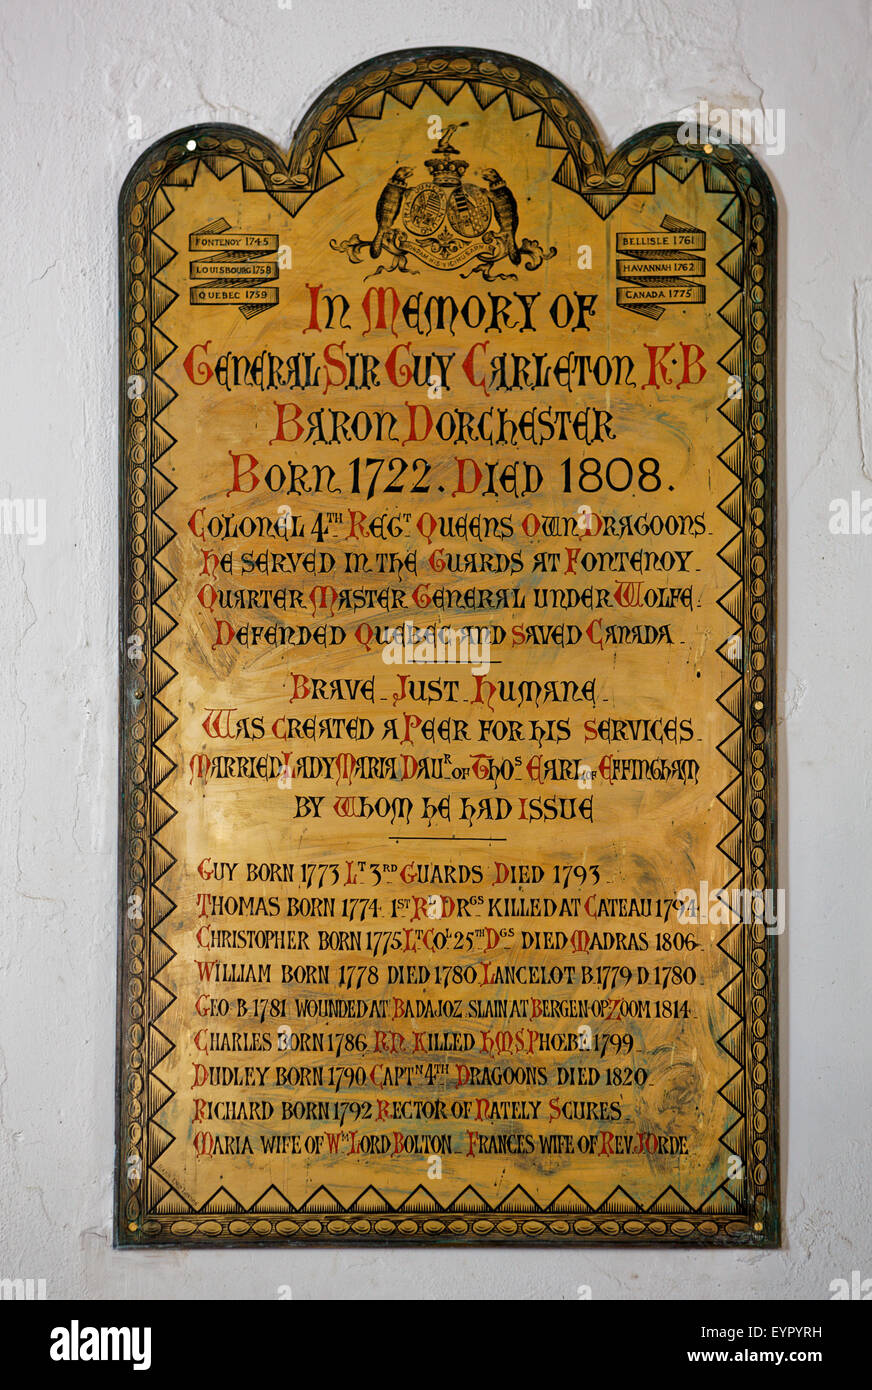 FONTENOY 1745
LOUISBOURG 1758
QUEBEC 1759
BELLISLE 1761
HAVANNAH 1762
CANADA 1775
IN MEMORY OF
GENERAL SIR GUY CARLETON K·B
BARON DORCHESTER
BORN 1722. DIED 1808.
COLONEL 4TH REGT QUEENS OWN DRAGOONS
HE SERVED IN THE GUARDS AT FONTENOY
QUARTER MASTER GENERAL UNDER WOLFE
DEFENDED QUEBEC AND SAVED CANADA
BRAVE JUST HUMANE
WAS CREATED A PEER FOR HIS SERVICES
MARRIED LADY MARIA DAUR OF THOS EARL OF EFFINGHAM
BY WHOM HE HAD ISSUE
GUY BORN 1773 LT 3RD GUARDS DIED 1793
THOMAS BORN 1774 1ST RL DRGS KILLED AT CATEAU 1794
CHRISTOPHER BORN 1775 LT COL 25TH DGS DIED MADRAS 1806
WILLIAM BORN 1778 DIED 1780 LANCELOT B.1779 D.1780
GEO B·1781 WOUNDED AT BADAJOZ SLAIN AT BERGEN·OP·ZOOM 1814
CHARLES BORN 1786 RN KILLED HMS PHOEBE 1799
DUDLEY BORN 1790 CAPTN 4TH DRAGOONS DIED 1820
RICHARD BORN 1792 RECTOR OF NATELY SCURES
MARIA WIFE OF WM LORD BOLTON FRANCES WIFE OF REV. J ORDE
alamy
a
alamy stock photo
EYPYRH
www.alamy.com